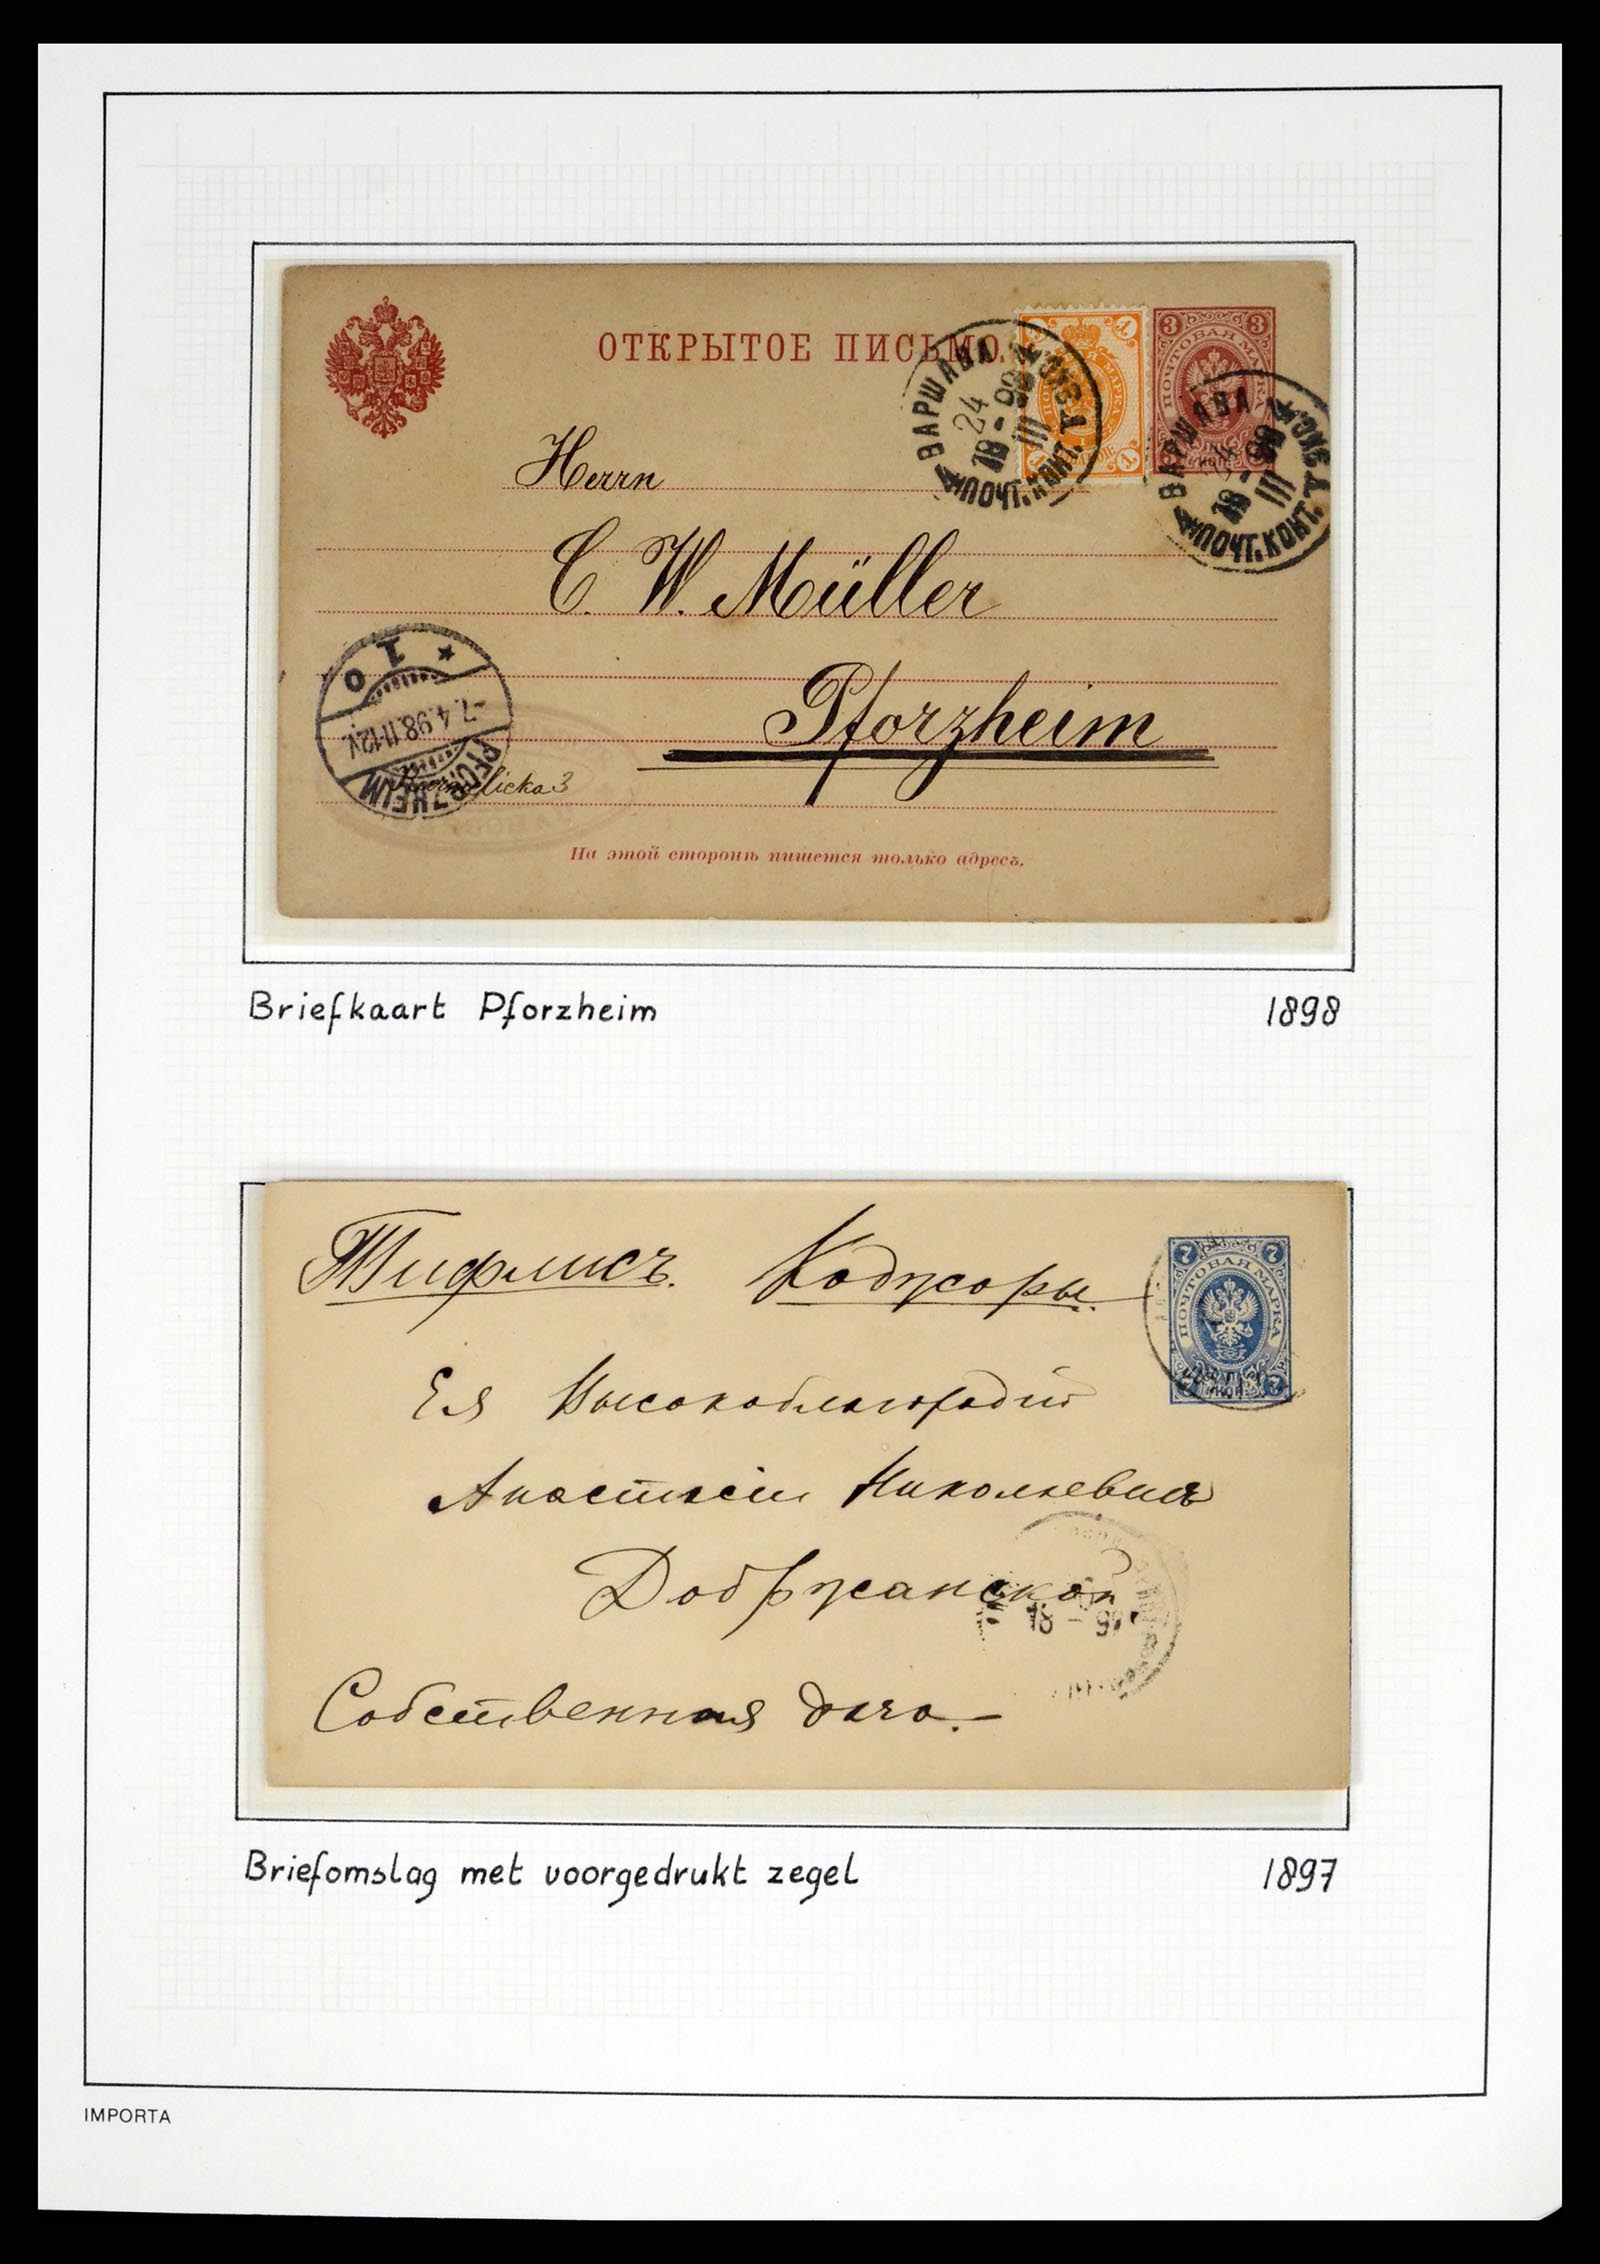 ОТКРЫТОЕ ПИСЬМО.
3 3
ПОЧТОВАЯ МАРКА
ВАРШАВА
24
18-98
III
ПОЧТ. КОНТ.
ВАРШАВА
III
ПОЧТ. КОНТ.
Herrn
C. W. Müller
Pforzheim
PFORZHEIM
-7.4.98.11-12V.
1 o
На этой сторонѣ пишется только адресъ.
Briefkaart Pforzheim 1898
Тифлисъ. Коджоры.
7 7
ПОЧТОВАЯ МАРКА
Ея Высокоблагородію
Анастасіи Николаевнѣ
Добржанской
Собственная дача.
Briefomslag met voorgedrukt zegel 1897
IMPORTA